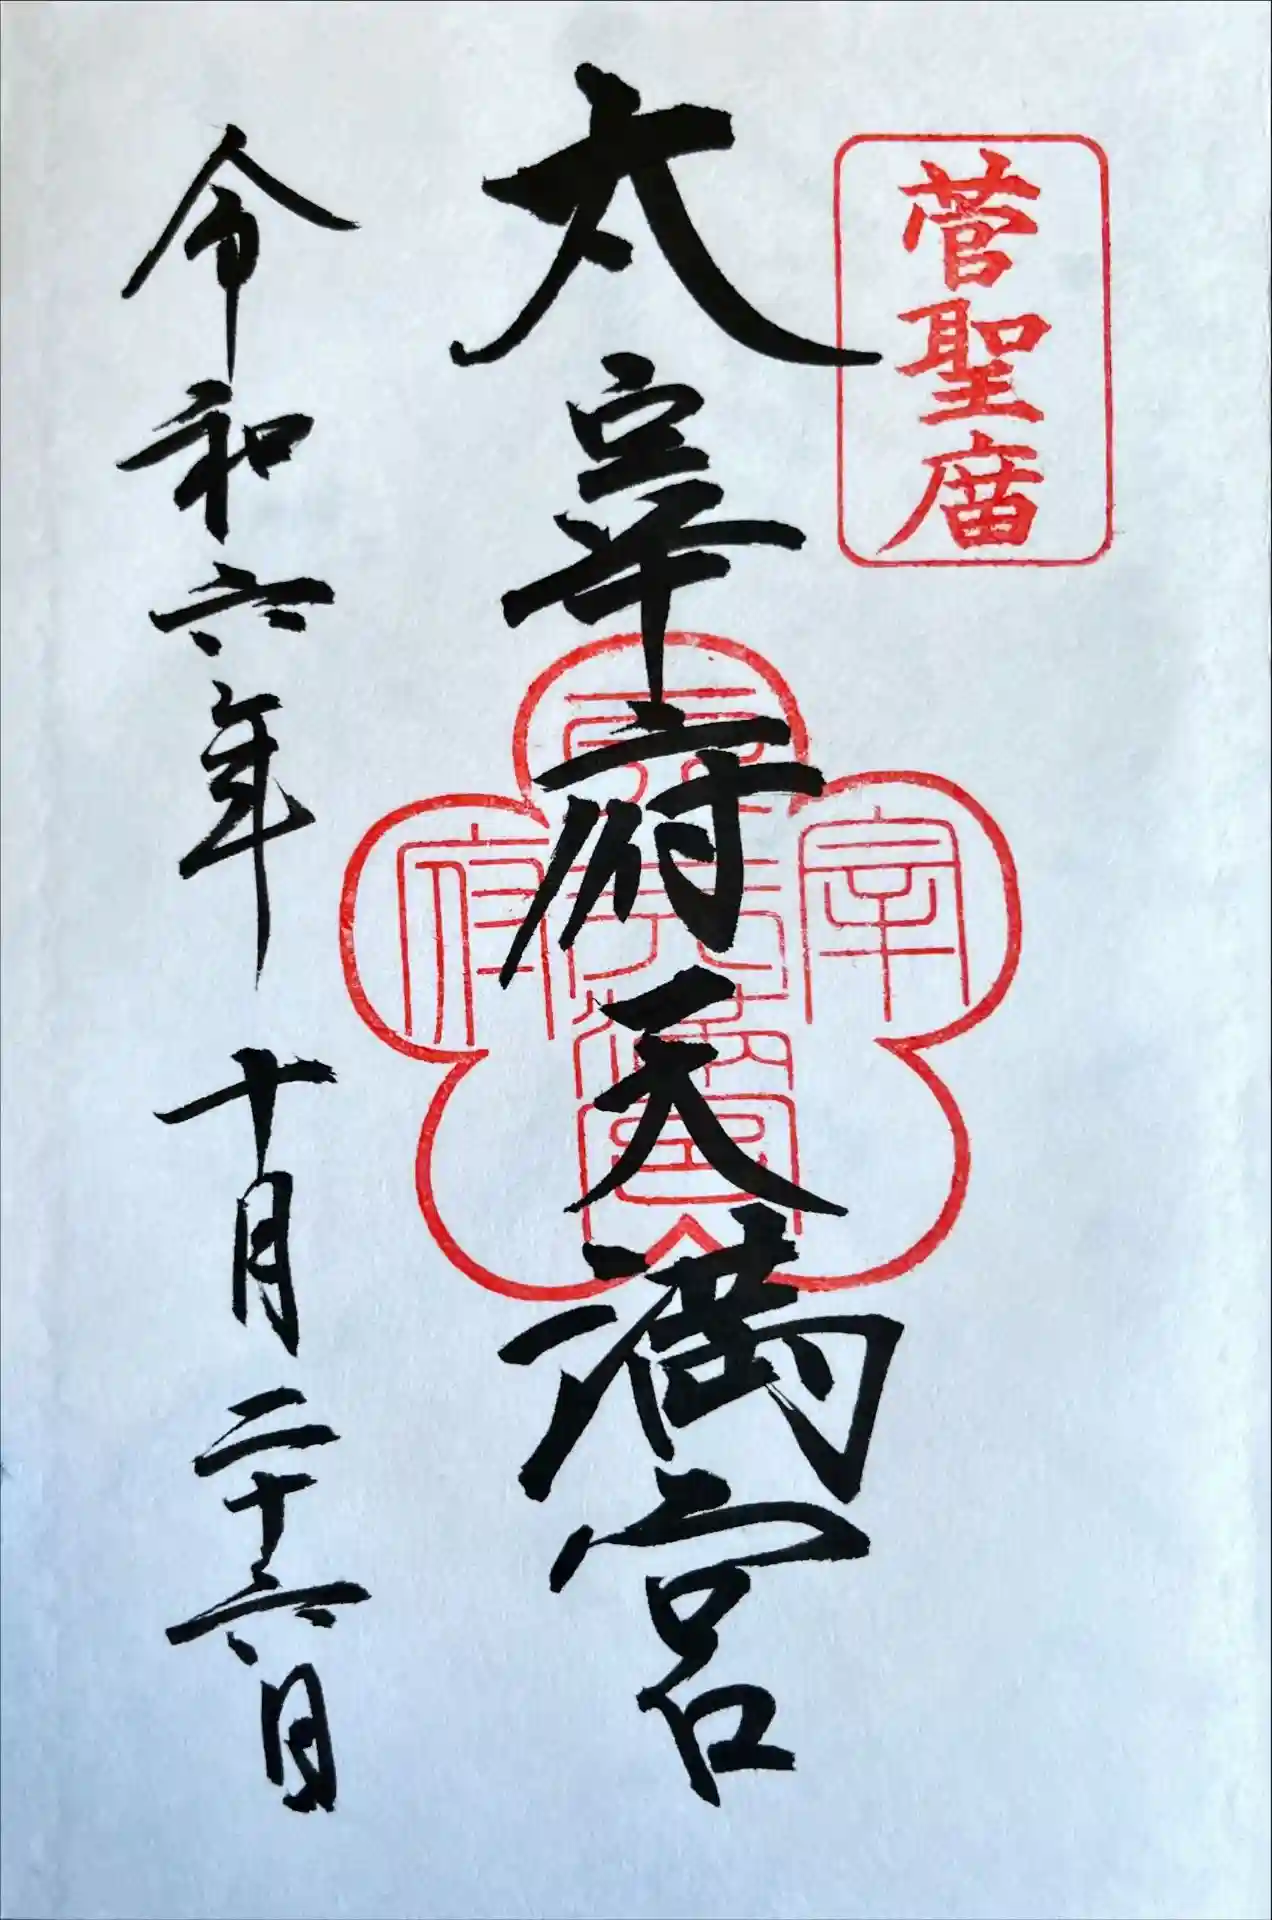 菅聖庿
太宰府天満宮
宰
府
令和六年 十月二十六日